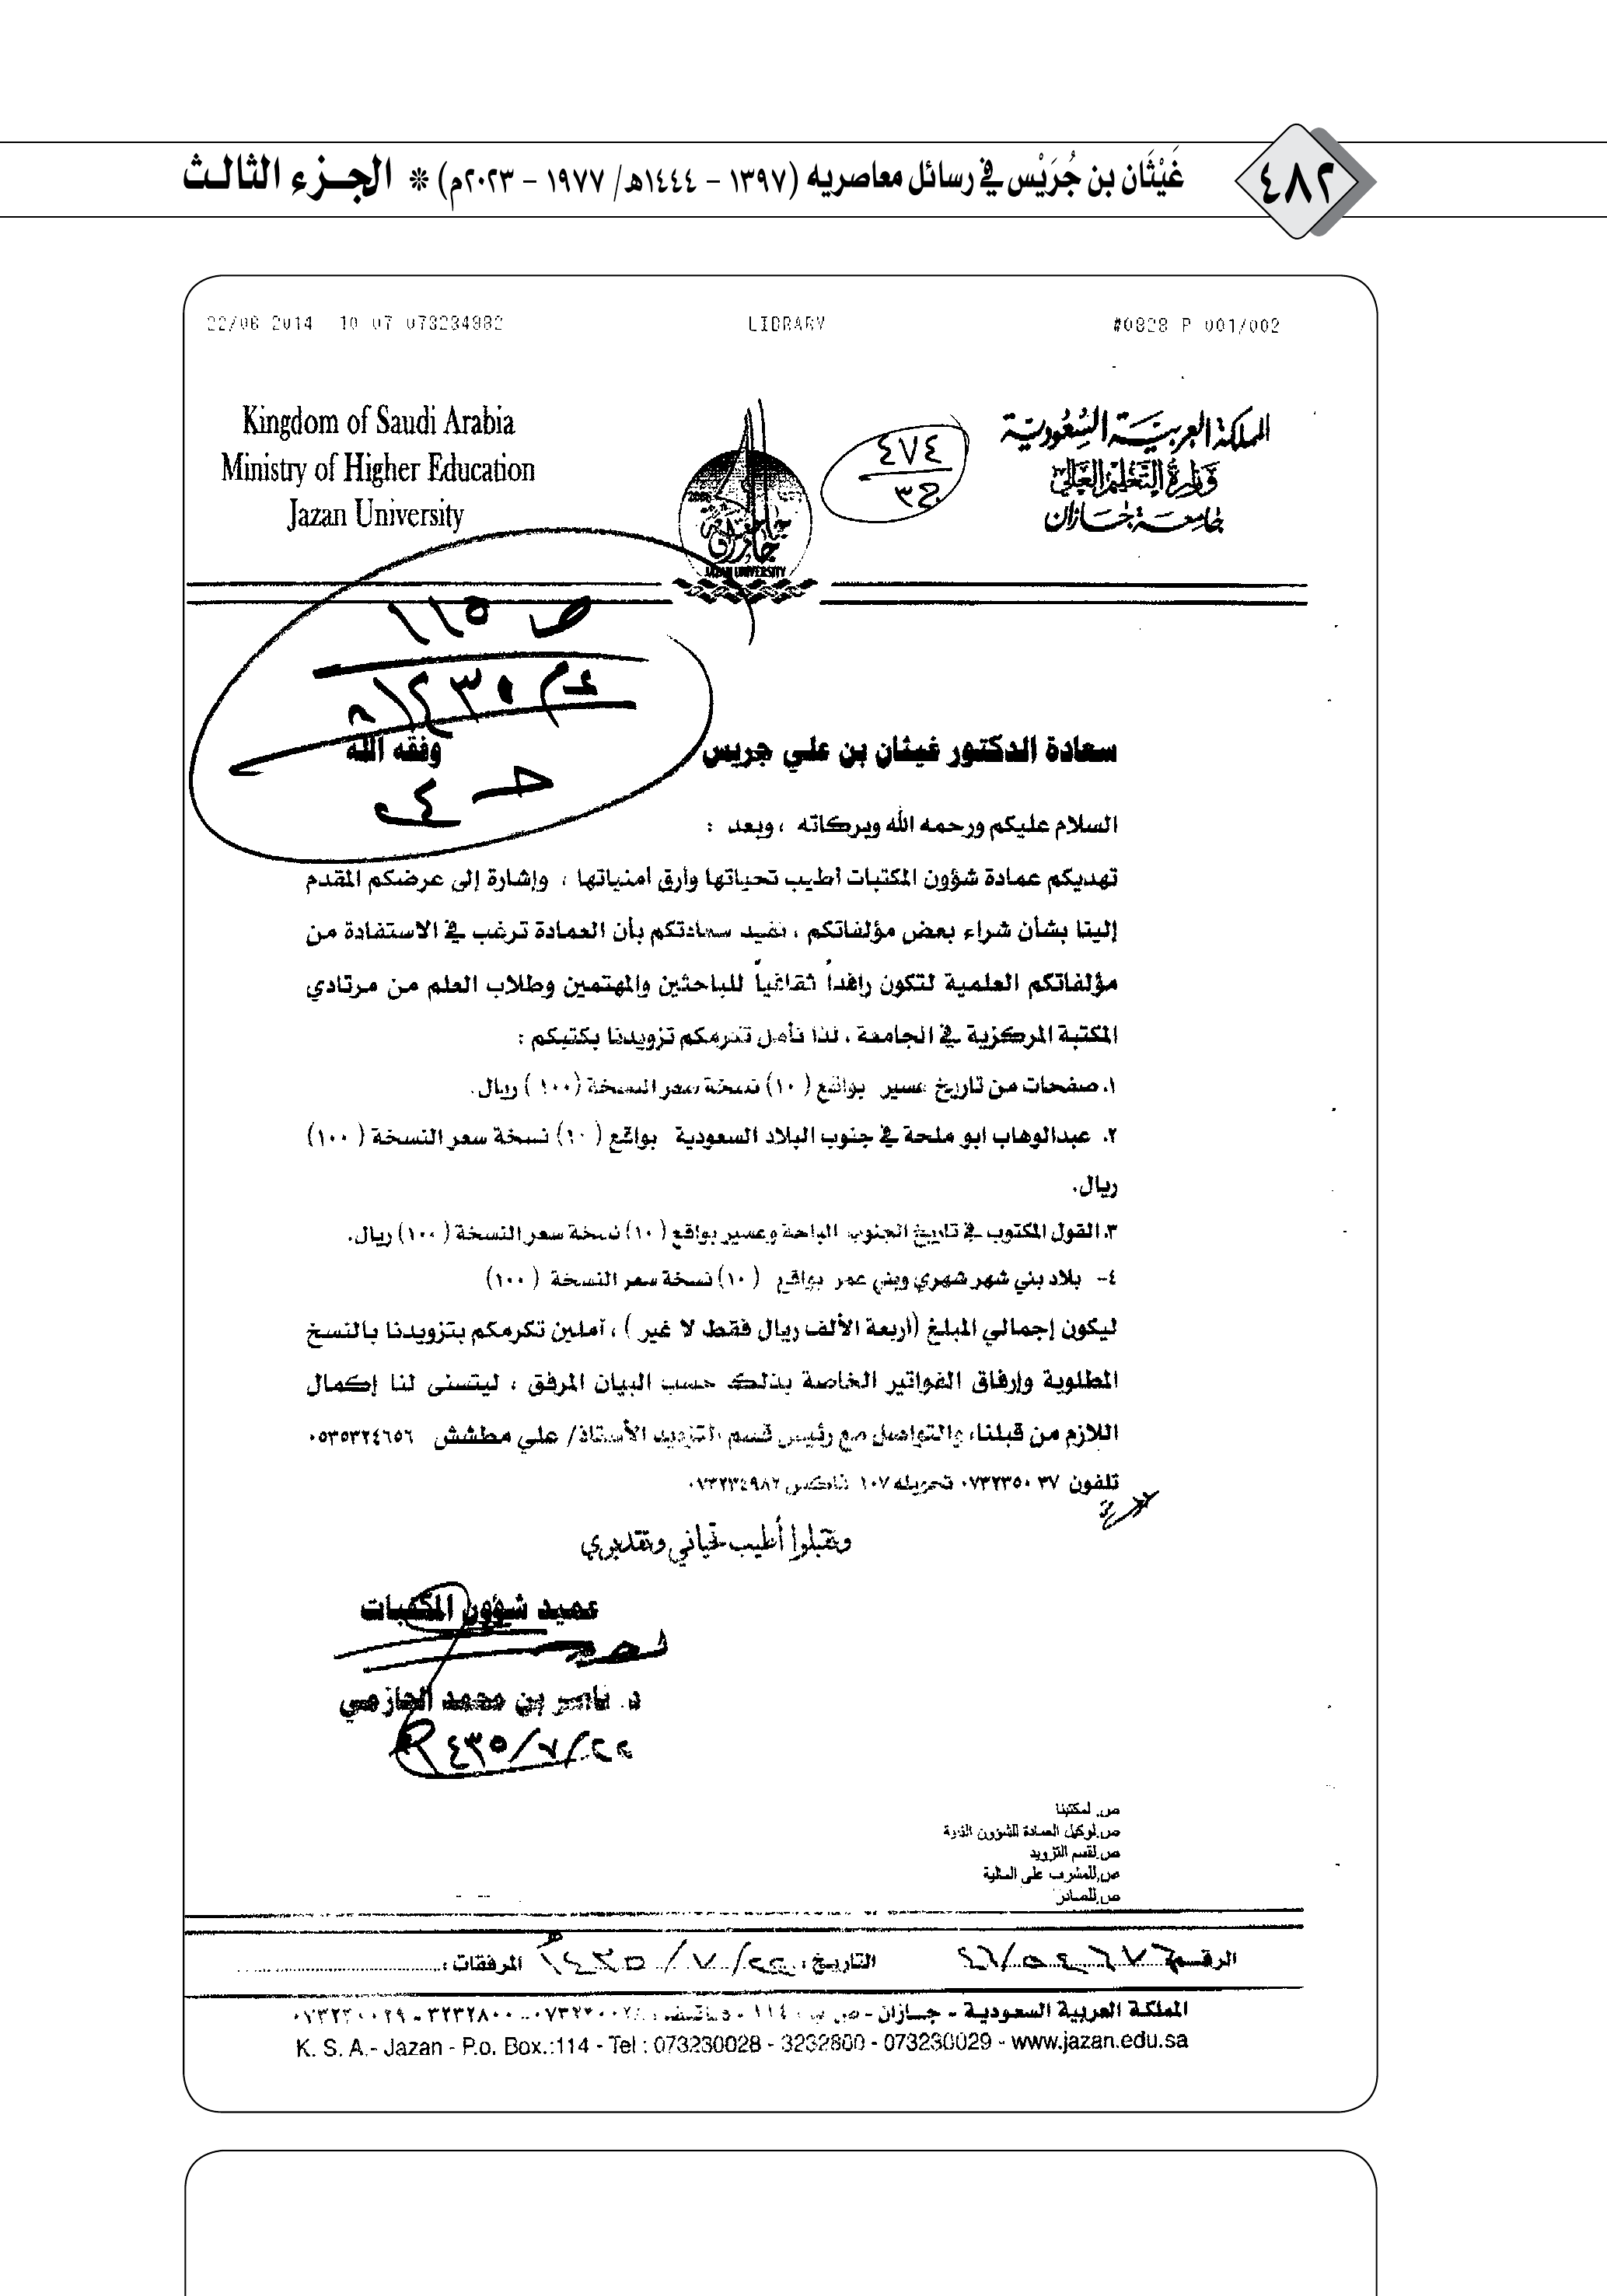 ٤٨٢
غَيْثَان بن جُرَيْس في رسائل معاصريه (١٣٩٧ – ١٤٤٤هـ/ ١٩٧٧ – ٢٠٢٣م) * الجزء الثالث
22/06 2014 10 07 073234982 LIBRARY #0828 P 001/002
Kingdom of Saudi Arabia
Ministry of Higher Education
Jazan University
المملكة العربية السعودية
وزارة التعليم العالي
جامعة جازان
٤٧٤
ج٣
JAZAN UNIVERSITY
ص ١١٥
سعادة الدكتور غيثان بن علي جريس وفقه الله
السلام عليكم ورحمه الله وبركاته ، وبعد :
تهديكم عمادة شؤون المكتبات أطيب تحياتها وأرق أمنياتها ، وإشارة إلى عرضكم المقدم
إلينا بشأن شراء بعض مؤلفاتكم ، نفيد سعادتكم بأن العمادة ترغب في الاستفادة من
مؤلفاتكم العلمية لتكون رافداً ثقافياً للباحثين والمهتمين وطلاب العلم من مرتادي
المكتبة المركزية في الجامعة ، لذا نأمل تكرمكم تزويدنا بكتبكم :
١. صفحات من تاريخ عسير بواقع ( ١٠) نسخة سعر النسخة (١٠٠ ) ريال.
٢. عبدالوهاب ابو ملحة في جنوب البلاد السعودية بواقع ( ١٠) نسخة سعر النسخة ( ١٠٠)
ريال.
٣. القول المكتوب في تاريخ الجنوب الباحة وعسير بواقع ( ١٠) نسخة سعر النسخة ( ١٠٠) ريال.
٤- بلاد بني شهر شهري وبني عمر بواقع ( ١٠) نسخة سعر النسخة ( ١٠٠)
ليكون إجمالي المبلغ (أربعة الألف ريال فقط لا غير ) ، آملين تكرمكم بتزويدنا بالنسخ
المطلوبة وإرفاق الفواتير الخاصة بذلك حسب البيان المرفق ، ليتسنى لنا إكمال
اللازم من قبلنا، والتواصل مع رئيس قسم التزويد الأستاذ/ علي مطشش ٠٥٣٥٣٢٤٦٥٦
تلفون ٠٧٣٢٣٥٠٣٧ تحويله ١٠٧ فاكس ٠٧٣٢٣٤٩٨٢
وتقبلوا أطيب تحياتي وتقديري
عميد شؤون المكتبات
د. ناصر بن محمد الحازمي
٢٢/٧/١٤٣٥
ص. لمكتبنا
ص.لوكيل العمادة للشؤون الفنية
ص.لقسم التزويد
ص.للمشرف على المالية
ص.للصادر
الرقم: التاريخ: ٢٢/٧/١٤٣٥ المرفقات:
المملكة العربية السعودية - جازان - ص ب : ١١٤ - هاتف : ٠٧٣٢٣٠٠٢٨ - ٣٢٣٢٨٠٠ - ٠٧٣٢٣٠٠٢٩
K. S. A.- Jazan - P.o. Box.:114 - Tel : 073230028 - 3232800 - 073230029 - www.jazan.edu.sa